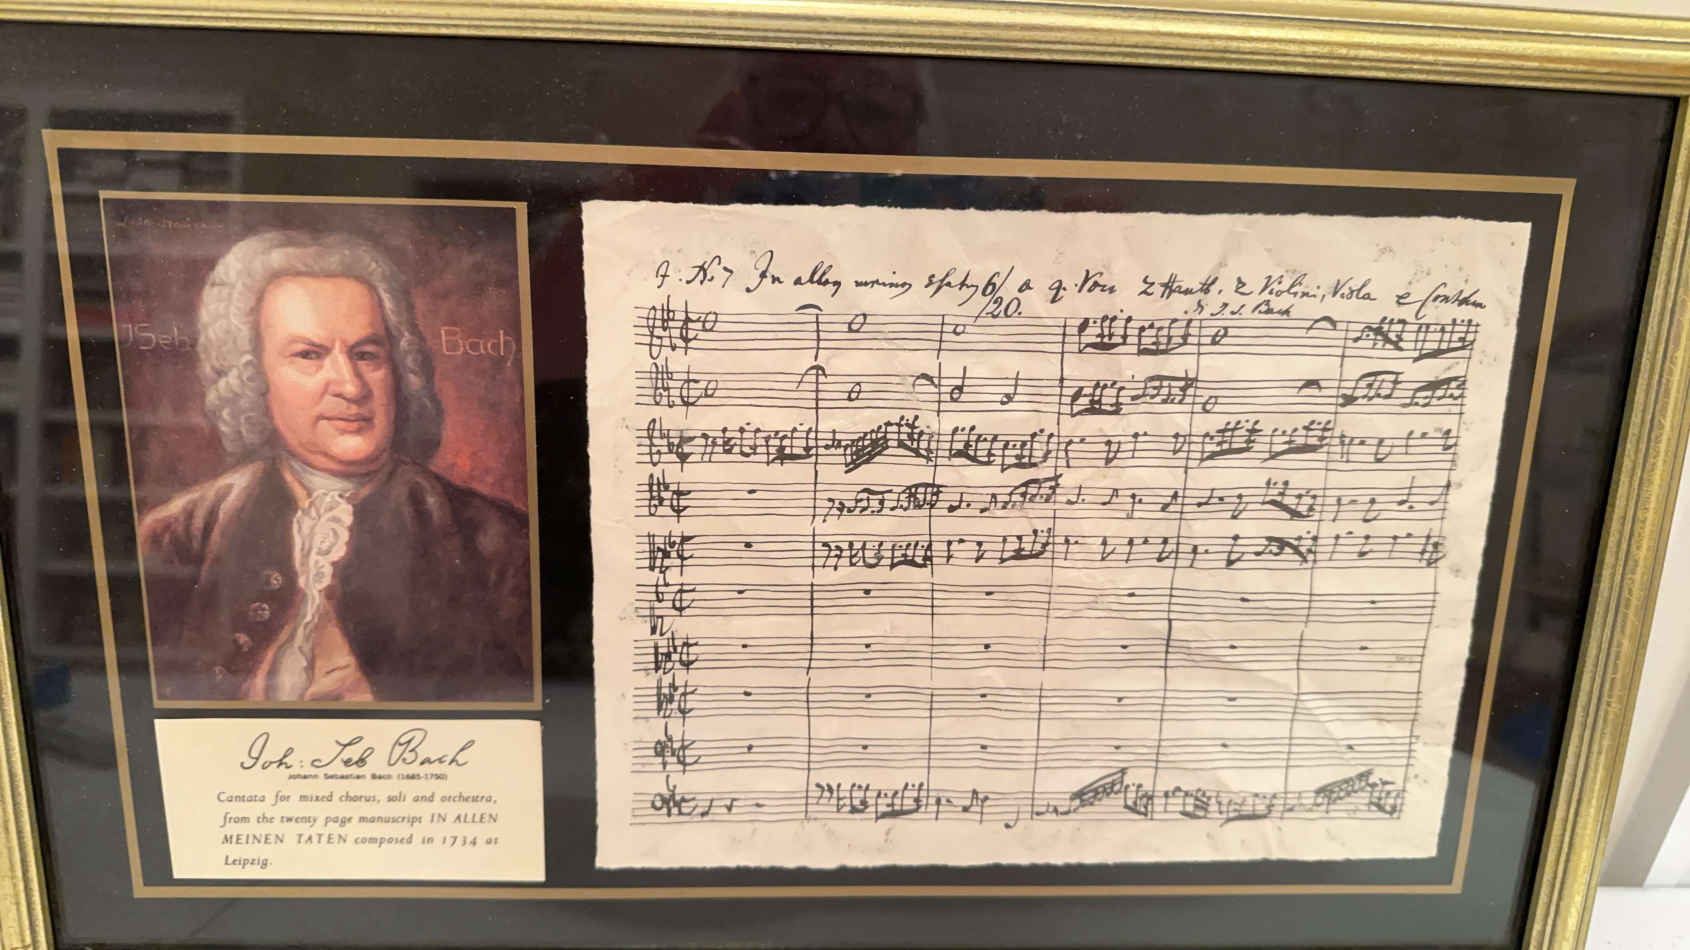 JSeb Bach
J. No 7 In allen meinen Thaten 6/ a 4 Voci 2 Hautb. 2 Violini, Viola e Continuo
/20. di J. S. Bach
Joh: Seb Bach
Johann Sebastian Bach (1685-1750)
Cantata for mixed chorus, soli and orchestra,
from the twenty page manuscript IN ALLEN
MEINEN TATEN composed in 1734 at
Leipzig.